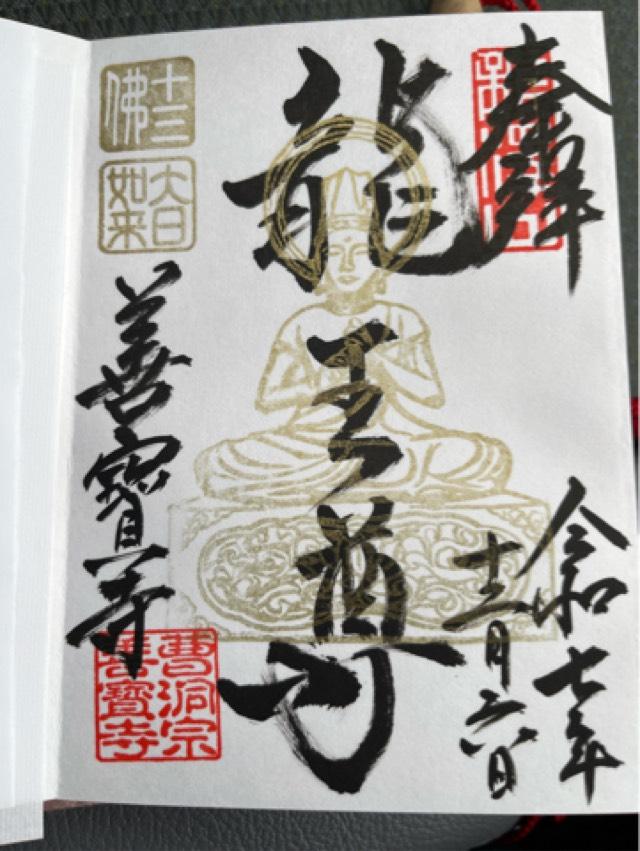 奉拝
令和七年
十二月二六日
龍王尊
十三佛
大日如来
善寳寺
曹洞宗
善寳寺